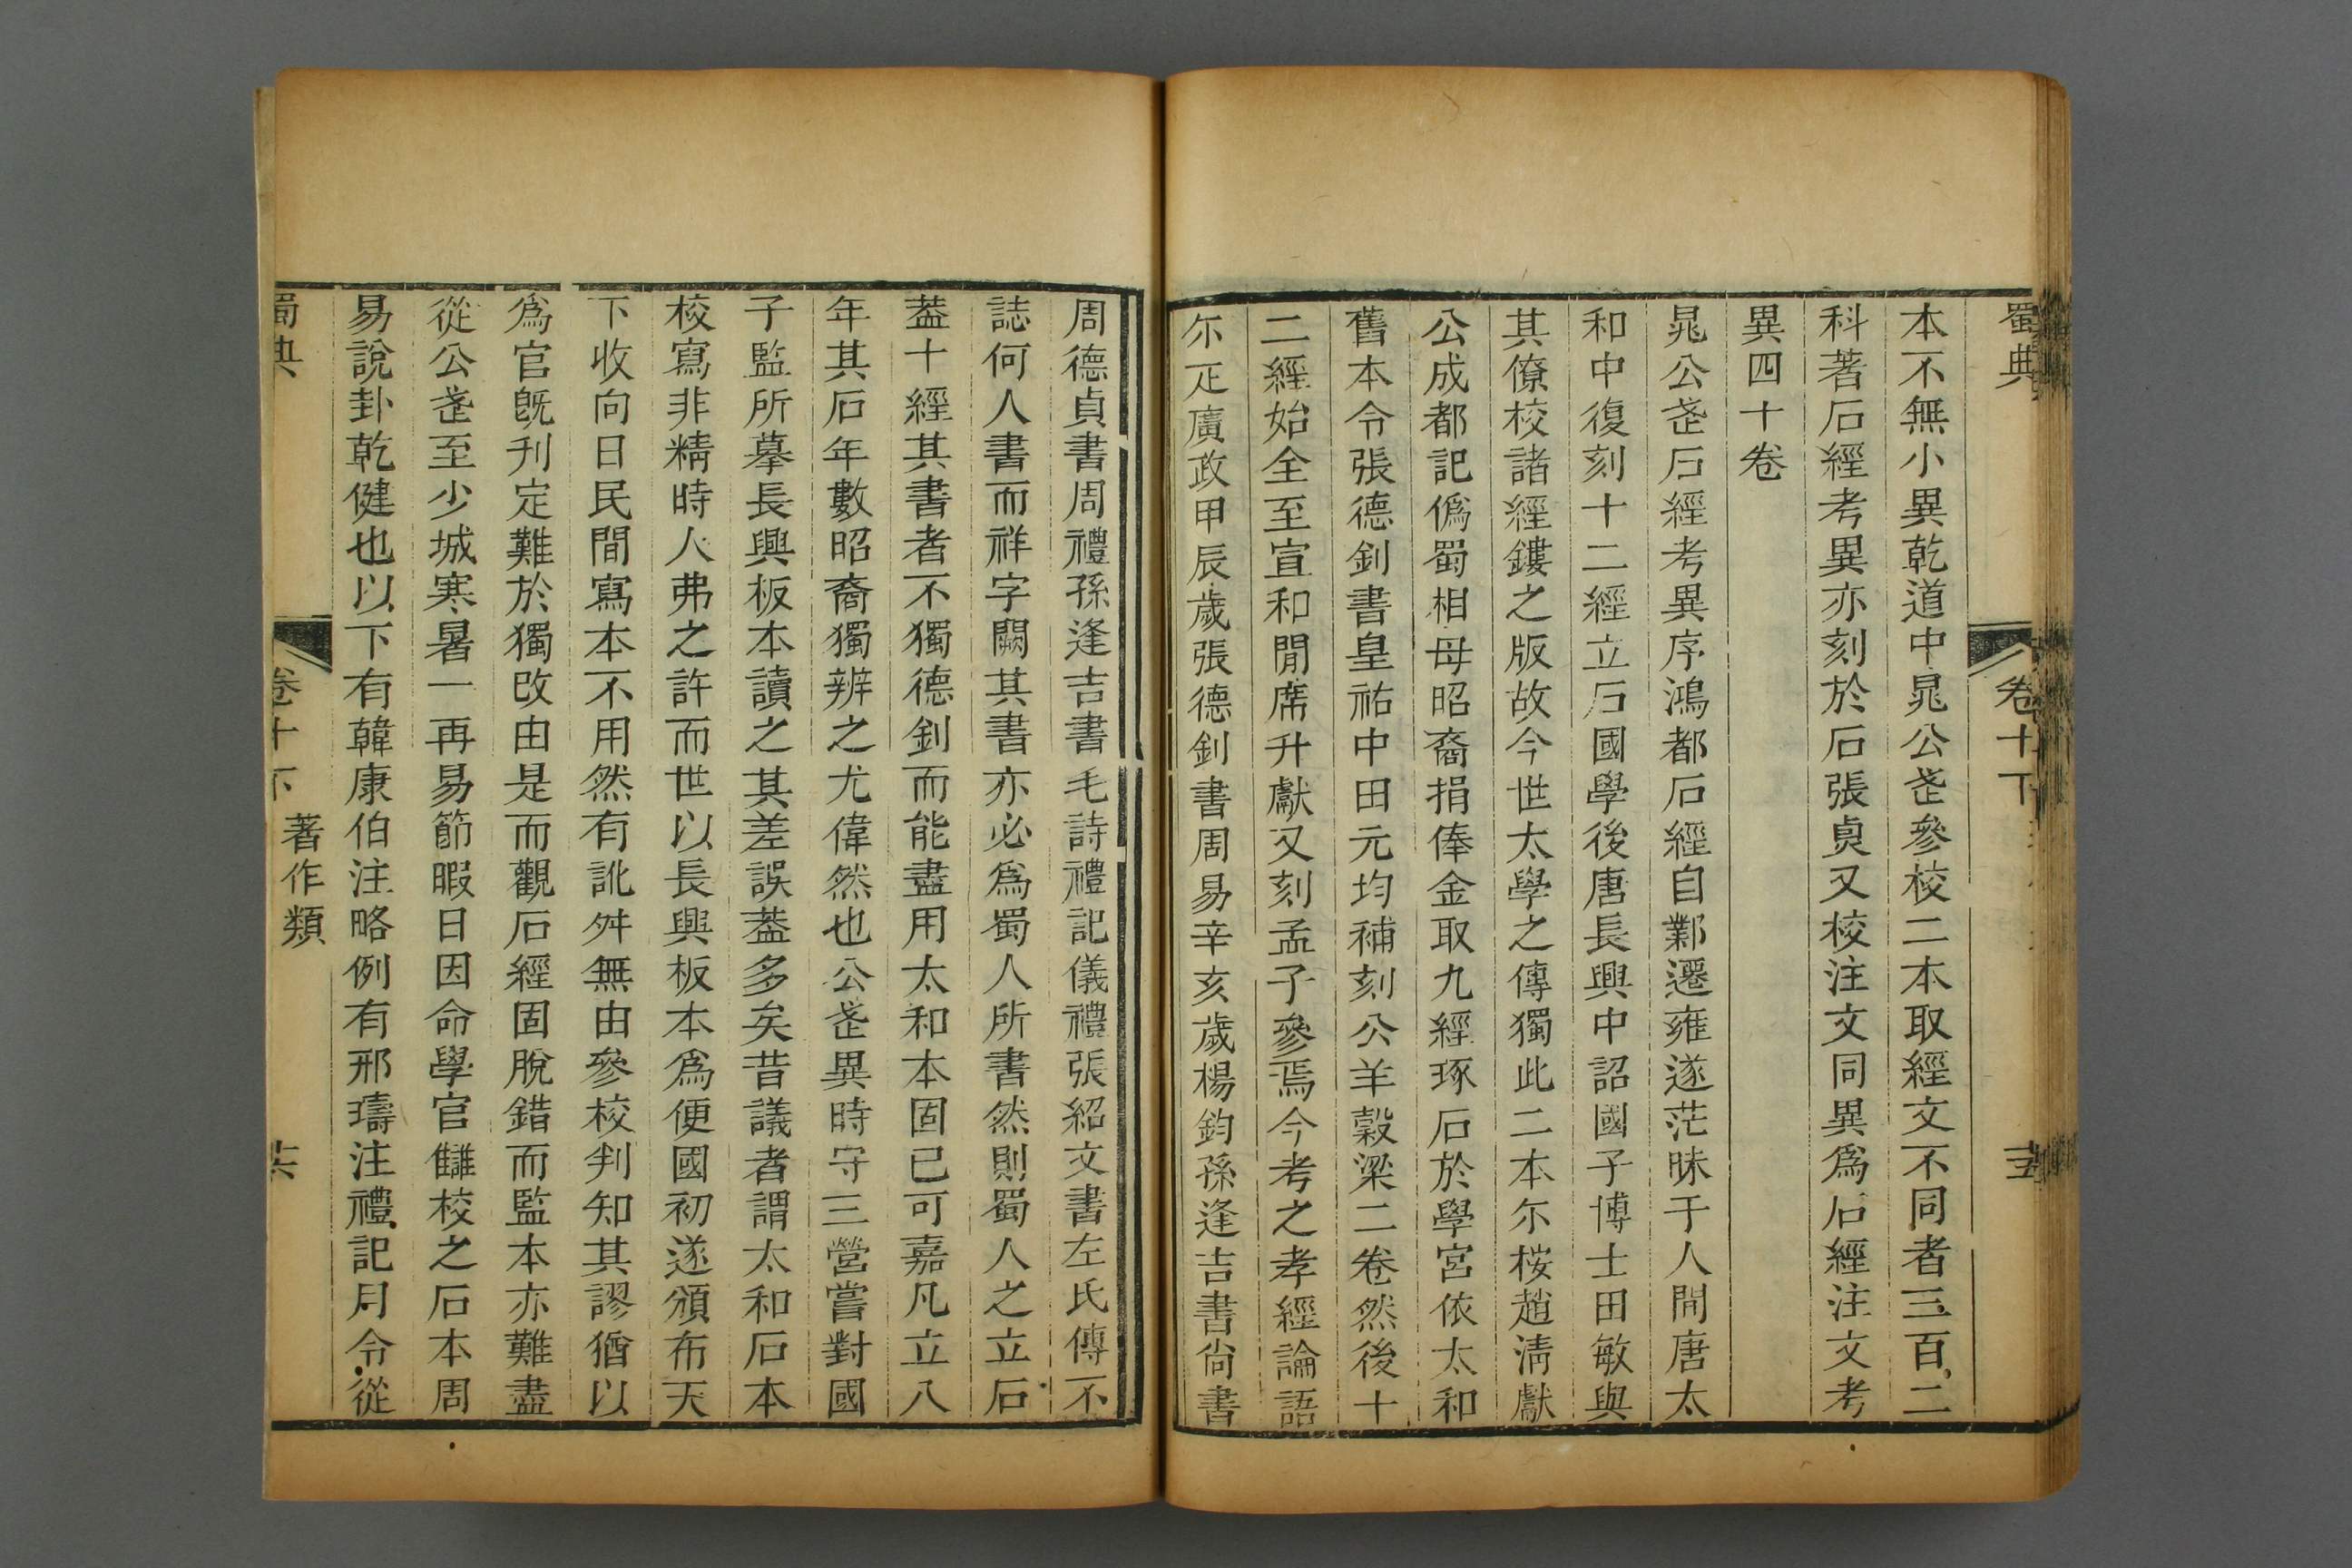 蜀典
卷十下
本不無小異乾道中晁公武參校二本取經文不同者三百二
科著石經考異亦刻於石張㚖又校注文同異爲石經注文考
異四十卷
晁公武石經考異序鴻都石經自鄴遷雍遂茫昧于人閒唐太
和中復刻十二經立石國學後唐長興中詔國子博士田敏與
其僚校諸經鏤之版故今世太學之傳獨此二本尒桉趙清獻
公成都記僞蜀相母昭裔捐俸金取九經琢石於學宮依太和
舊本令張德釗書皇祐中田元均補刻公羊穀梁二卷然後十
二經始全至宣和閒席升獻又刻孟子參焉今考之孝經論語
尒疋廣政甲辰歲張德釗書周易辛亥歲楊鈞孫逢吉書尙書
周德貞書周禮孫逢吉書毛詩禮記儀禮張紹文書左氏傳不
誌何人書而祥字闕其書亦必爲蜀人所書然則蜀人之立石
葢十經其書者不獨德釗而能盡用太和本固已可嘉凡立八
年其石年數昭裔獨辨之尤偉然也公武異時守三營嘗對國
子監所摹長興板本讀之其差誤葢多矣昔議者謂太和石本
校寫非精時人弗之許而世以長興板本爲便國初遂頒布天
下收向日民間寫本不用然有訛舛無由參校判知其謬猶以
爲官旣刊定難於獨改由是而觀石經固脫錯而監本亦難盡
從公武至少城寒暑一再易節暇日因命學官讎校之石本周
易說卦乾健也以下有韓康伯注略例有邢璹注禮記月令從
蜀典
卷十下
著作類